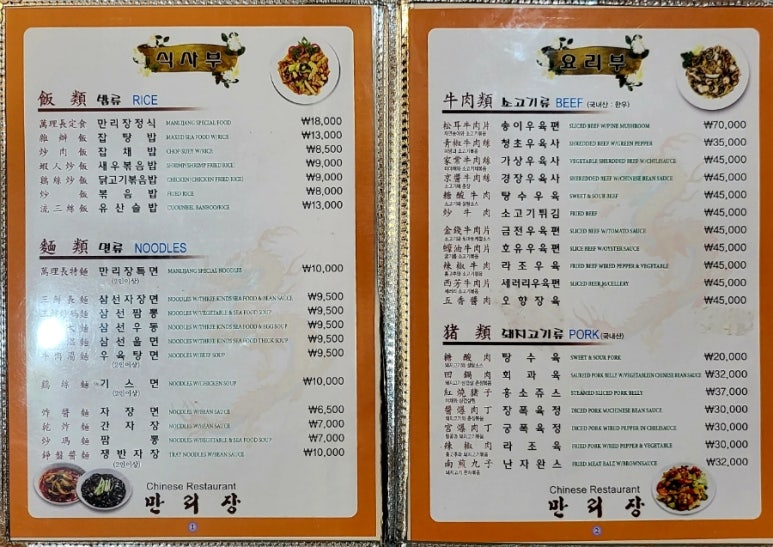 식사부
飯 類 밥류 RICE
萬理長定食 만리장정식 MANLIJANG SPECIAL FOOD ₩18,000
雜辦飯 잡탕밥 MAXED SEA FOOD W/RICE ₩13,000
炒肉飯 잡채밥 CHOP SUEY W/RICE ₩8,500
蝦人炒飯 새우볶음밥 SHRIMP(SHRIMP FRIED RICE) ₩9,000
鷄絲炒飯 닭고기볶음밥 CHICKEN (CHICKEN FRIED RICE) ₩9,000
炒飯 볶음밥 FRIED RICE ₩8,000
流三絲飯 유산슬밥 ₩13,000
麵 類 면류 NOODLES
萬理長特麵 만리장특면 MANLIJANG SPECIAL NOODLES ₩10,000
(2인이상)
三鮮長麵 삼선자장면 NOODLES W/THREE KINDS SEA FOOD & BEAN SAUCE ₩9,500
삼선짬뽕 NOODLES W/VEGETABLE & SEA FOOD SOUP ₩9,500
삼선우동 NOODLES W/THREE KINDS SEA FOOD & EGG SOUP ₩9,500
삼선울면 NOODLES W/THREE KINDS SEA FOOD THICK SOUP ₩9,500
牛肉湯麵 우육탕면 NOODLES W/BEEF SOUP ₩9,500
(2인이상)
鷄絲麵 기스면 NOODLES W/CHICKEN SOUP ₩10,000
炸醬麵 자장면 NOODLES W/BEAN SAUCE ₩6,500
乾炸麵 간자장 NOODLES W/BEAN SAUCE ₩7,000
炒瑪麵 짬뽕 NOODLES W/VEGETABLE & SEA FOOD SOUP ₩7,000
錚盤醬麵 쟁반자장 TRAY NOODLES W/BEAN SAUCE ₩10,000
(2인이상)
Chinese Restaurant
만리장
1
요리부
牛肉類 소고기류 BEEF (국내산 : 한우)
松茸牛肉片 송이우육편 SLICED BEEF W/PINE MUSHROOM ₩70,000
靑椒牛肉絲 청초우육사 SHREDDED BEEF W/GREEN PEPPER ₩35,000
家常牛肉絲 가상우육사 VEGETABLE SHREDDED BEEF W/CHILI SAUCE ₩45,000
京醬牛肉絲 경장우육사 SHREDDED BEEF W/CHINESE BEAN SAUCE ₩45,000
糖酸牛肉 탕수우육 SWEET & SOUR BEEF ₩45,000
炒牛肉 소고기튀김 FRIED BEEF ₩45,000
金錢牛肉片 금전우육편 SLICED BEEF W/TOMATO SAUCE ₩45,000
蠔油牛肉片 호유우육편 SLICE BEEF W/OYSTER SAUCE ₩45,000
辣椒牛肉 라조우육 FRIED BEEF W/RED PEPPER & VEGETABLE ₩45,000
西芳牛肉片 세러리우육편 SLICED BEEF W/CELLERY ₩45,000
五香醬肉 오향장육 ₩45,000
猪 類 돼지고기류 PORK (국내산)
糖酸肉 탕수육 SWEET & SOUR PORK ₩20,000
回鍋肉 회과육 SAUREED PORK BELLY W/VEGETABLE IN CHINESE BEAN SAUCE ₩32,000
紅燒猪子 홍소쥬스 STEAMED SLICED PORK BELLY ₩37,000
醬爆肉丁 장폭육정 DICED PORK W/CHINESE BEAN SAUCE ₩30,000
宮爆肉丁 궁폭육정 DICED PORK W/RED PEPPER IN CHILI SAUCE ₩30,000
辣椒肉 라조육 FRIED PORK W/RED PEPPER & VEGETABLE ₩30,000
南煎九子 난자완스 FRIED MEAT BALE W/BROWN SAUCE ₩32,000
Chinese Restaurant
만리장
2